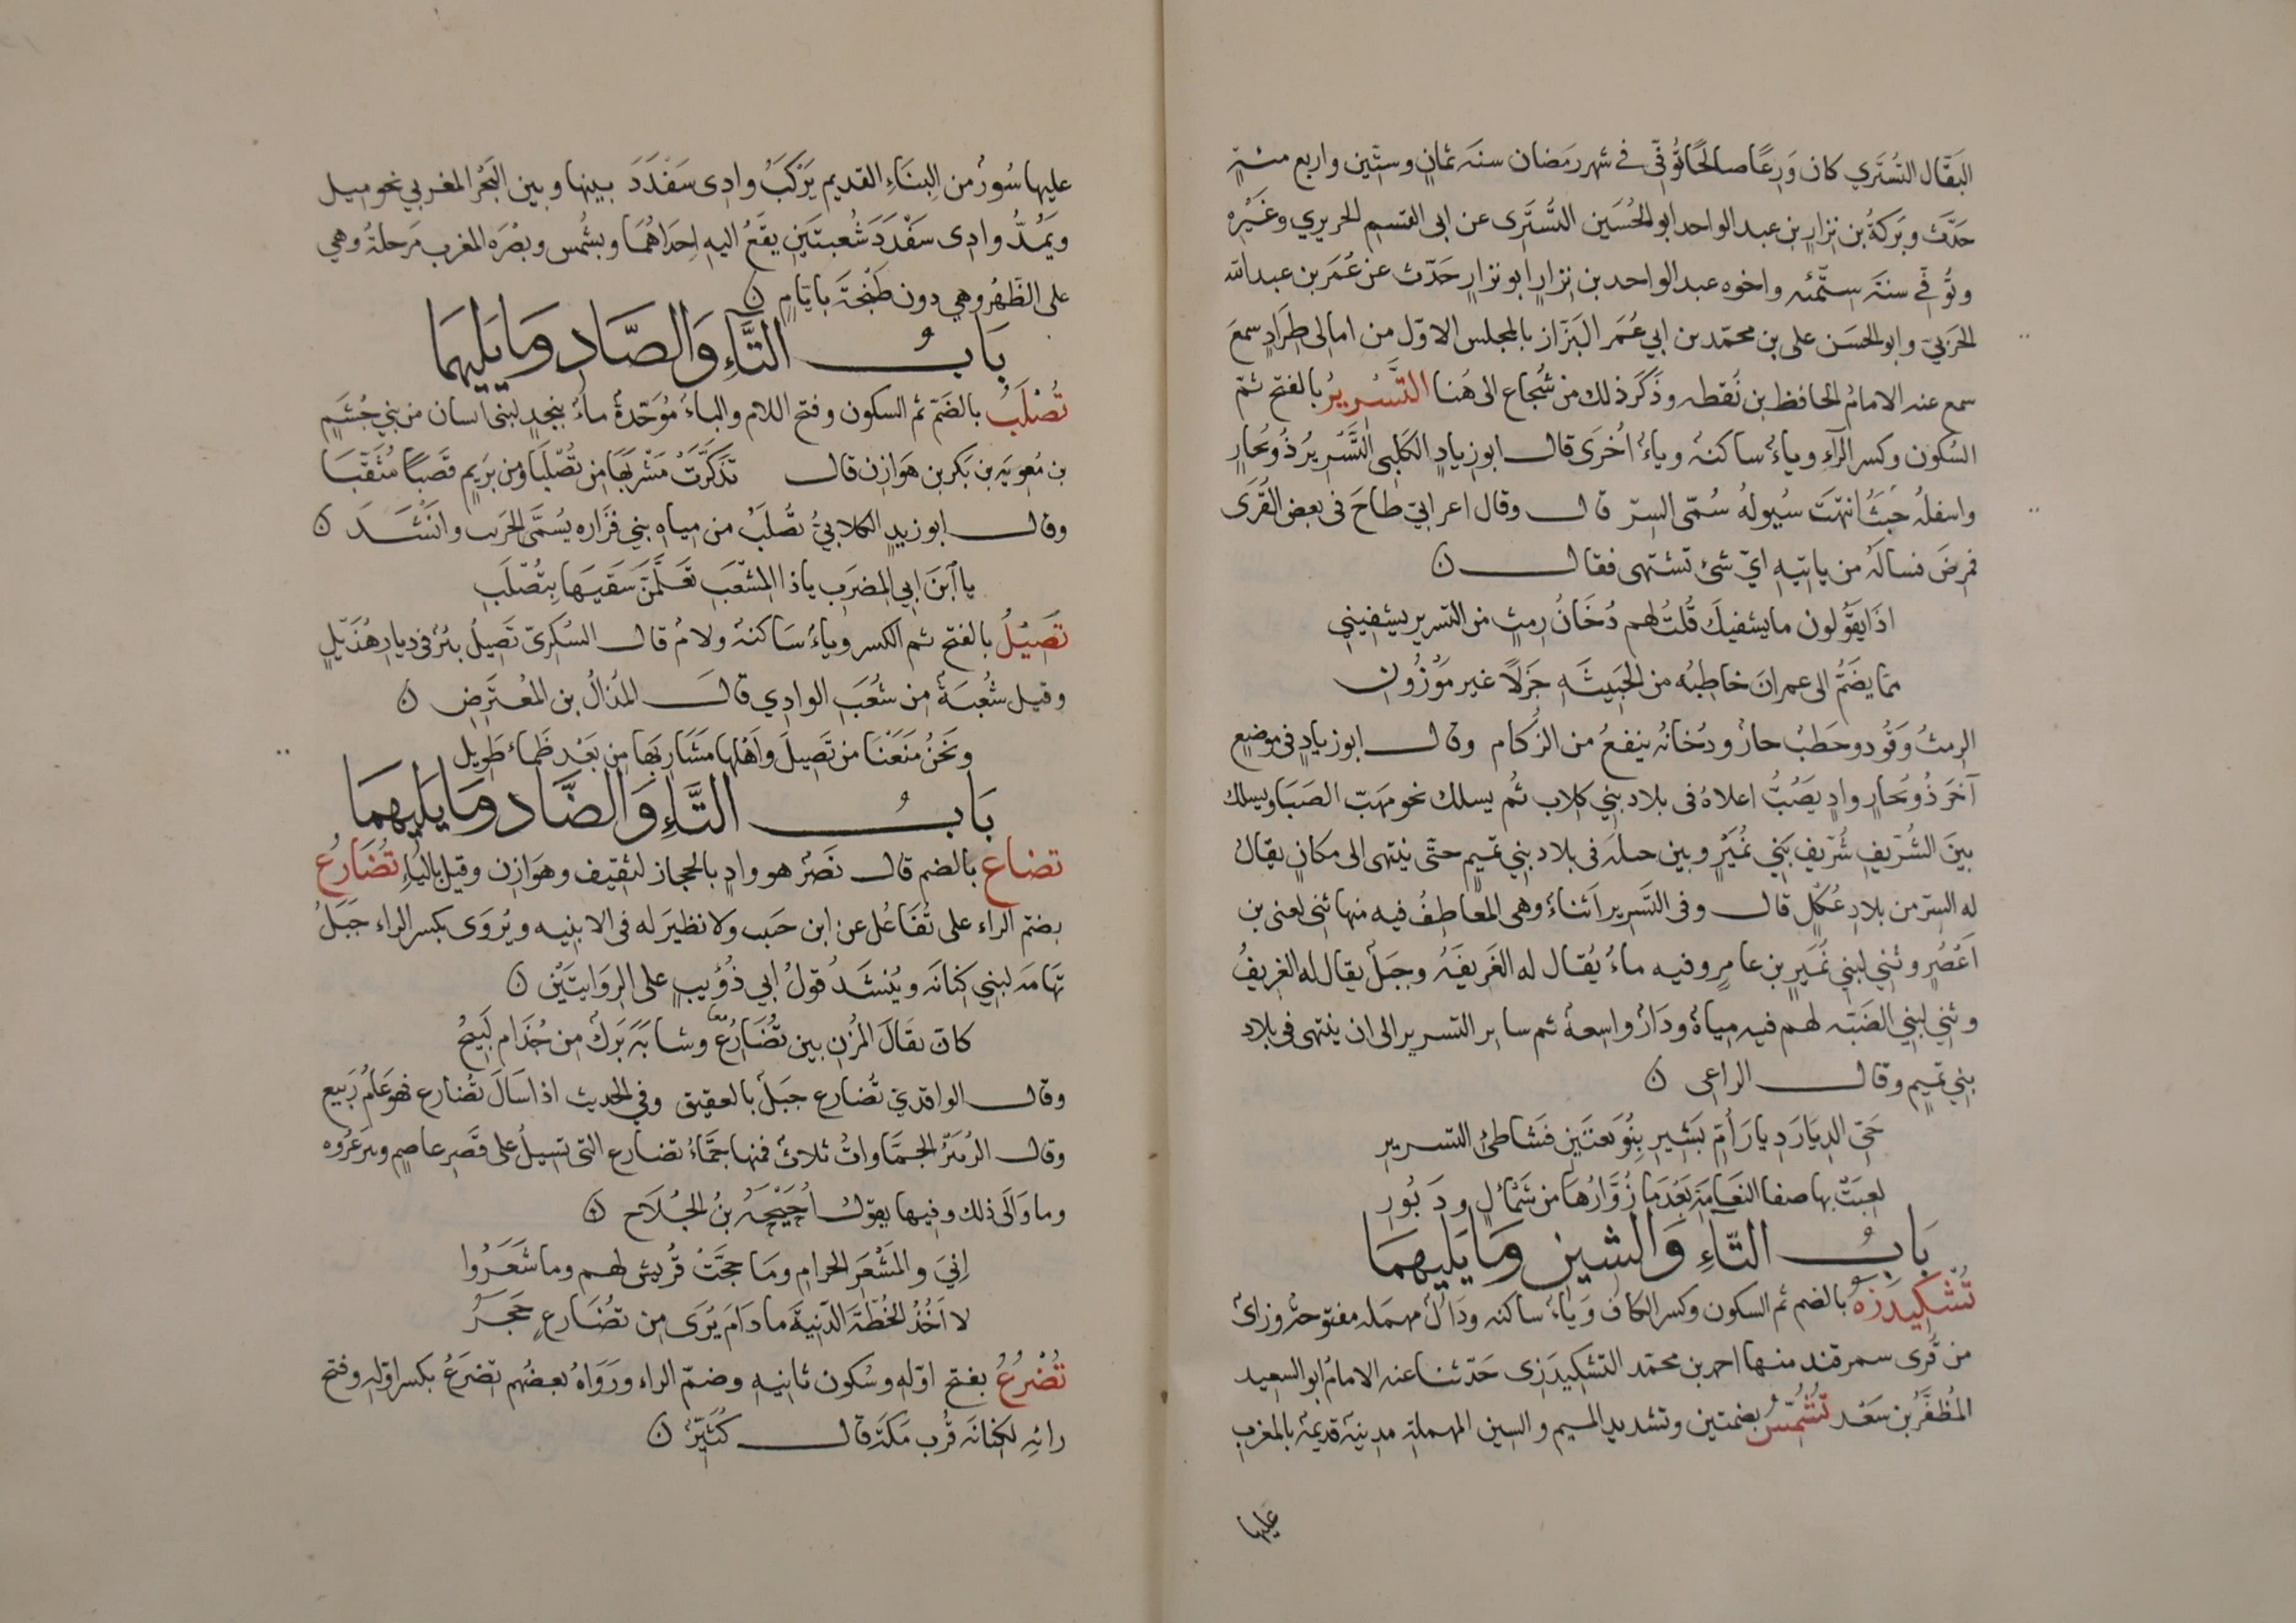 البَقَّال التُسْتَري كان وَرِعًا صالحًا تُوُفّي في شهر رمَضان سنَة ثمانٍ وستّين واربع مئةٍ
حدّث وبَركةُ بن نِزارِ بن عبد الواحد ابو الحُسَين التُسْتَرى عن ابى القسم الحريري وغَيْرِه
وتُوُفّي سنَة ستّمئه واخوه عبد الواحد بن نِزارٍ ابو نزارٍ حَدّث عن عُمَر بن عبد الله
الحَربيّ وابو الحسَن على بن محمّد بن ابي عُمَر البَزّاز بالمجلس الاوّل من امالى طِرَادٍ سمعَ
سمع عنه الامامُ الحافظ بن نُقطه وذَكَر ذلك من شُجاع الى هُنا التَّسْرِيرُ بالفتح ثمّ
السُكون وكسر الرآءِ وياءُ ساكنهُ وياءُ اُخرَى قال ابو زيادٍ الكَلبى التَّسْرِيرُ ذُو بُحارٍ
واسفلهُ حَيثُ انتهَت سُيولهُ سُمّى السِرّ قال وقال اعرابيّ طاحَ فى بعض القُرَى
فمرِضَ فسالَهُ من ياتيهِ ايّ شئ تشتهى فقال ن
اذَا يقَوُلون ما يشفيكَ قُلتُ لهم دُخَانُ رِمثٍ من التسرير يشفِيني
ممّا يضَمُّ الى عمرانَ خاطِبُه من الجَنِيبَةِ جَزْلاً غير مَوْزُونِ
الرِمثُ وَقُود وحَطبُ حارُ ودُخانُه ينفعُ من الزُكام وقال ابو زيادٍ فى موضِعٍ
آخَرَ ذُو بُحارٍ وادٍ يَصُبُّ اعلاهُ فى بلاد بنِي كلاب ثُم يسلك نحو مَهَبّ الصَبَا ويسلك
بينَ الشُرَيفِ شُرَيفِ بَنِي نُمَيْرٍ وبين حبلَه فى بلاد بنِي تمِيمٍ حتّى ينتهى الى مكانٍ يقالُ
له السِرّ من بلادِ عُكلٍ قال وفى التَسْرِير اَثناءُ وهى المعَاطِفُ فيه منها ثنى لغنى بن
اَعْصُرٍ وثنِي لبنِي نُمَيرِ بن عامِرٍ وفيه ماءُ يُقال له الغَرِيفَةُ وجبَلُ يقال له الغريفُ
وثنِي لبنِي الضَبّه لهم فيهِ مِياهُ ودَارُ واسِعهُ ثم ساير التسرير الى ان ينتهى فى بلاد
بنِي تميم وقال الراعى ن
حَيّ الدِيَارَ دِيارَ اُمّ بَشِيرِ بِنُوَيعتَينِ فشَاطئ التسرير
لعِبَتْ بها صفا النعَامةِ بَعْدَما زُوَّارُهَا من شَمْأَلٍ ودَبُورِ
بَابُ التَّاءِ وَالشِينِ وَمَا يَلِيهِمَا
تُشْكِيدَزَه بالضم ثم السكون وكسر الكاف وَياءُ ساكنه ودَالُ مهمله مفتوحهُ وزاىُ
من قُرَى سمرقند منها احمد بن محمّد التشكِيدَزى حَدّثنا عنه الامامُ ابو السعِيد
المُظفَّرُ بن سَعْد تُشُمُّسُ بضمتين وتشديد الميم والسِين المهملة مدِينةُ قديمهُ بالمغربِ
عليها
عليها سُورُ من البِنَاءِ القديم يَرْكَبُ وادِى سَفْدَدَ بينها وبين البَحْر المغربي نحو ميل
ويَمُدُّ وادِى سَفْدَدَ شُعبتَينِ يقَعُ اليهِ اِحدَاهُمَا وبشُمس وبصْرَه المغرب مَرحلةُ وهي
على الظَهْر وهي دون طَنْجَة بايّامٍ ن
بَابُ التَّاءِ وَالصَّادِ وَمَا يَلِيهِمَا
تُصْلَبُ بالضَمّ ثم السكون وفتح اللام والباءُ مُوَحّدهُ ماءُ بنجدٍ لبنى انسان من بنِي جُشَمٍ
بن مُعٰويَه بن بَكر بن هَوازِن قال تذَكَّرَتْ مَشْرَبَها من تُصْلَبَا ومن بَرِيمٍ قصَبًا مُثقّبَا
وقال ابو زيدٍ الكلابيُّ تصُلَبُ من مِياهِ بنِي فزَاره يُسَمَّى الحَرب واَنشَدَ ن
يا اَبنَ ابِي المِضرَبِ ياذا المشْعَبِ تعَلَّمَنْ سَقيَهَا بِتُصْلَبِ
تَصِيْلُ بالفتح ثم الكسر وياءُ سَاكنهُ ولامُ قال السُكرىّ تَصِيلُ بئرُ فى ديارِ هُذَيْلٍ
وقيل شُعْبَةُ من شُعَبِ الوادِي قالَ المُذالُ بن المُعْتَرِضِ ن
ونَحْنُ مَنعَنْا من تَصِيلَ واَهْلِها مَشَارِبَها مِن بَعْد ظَماءِ طَوِيل
بَابُ التَّاءِ وَالضَّادِ وَمَا يَلِيهِمَا
تضاع بالضم قال نَصْرُ هو وادٍ بالحجاز لثقِيف وهَوَازِن وقيل بالياءِ تُضَارُع
بضمّ الراء على تُفَاعُل عن ابن حَبيب ولا نظيرَ له فى الابنيه ويُروَى بكسر الراء جَبَلُ
تهَامَه لبنِي كنانَه ويُنشَدُ قولُ ابي ذُؤَيبٍ على الرِوَايتَيْنِ ن
كانَ ثقَالَ المُزْنِ بين تُضَارُعٍ معًا وشابَةَ بَرْكُ مِن جُذَام لَبِيجُ
وقال الواقدِيّ تُضارع جبَلُ بالعقِيق وفي الحدِيث اذا سَالَ تضُارع فهو عَامُ رَبِيع
وقال الزُبَيْرُ الجَمَّاواتُ ثلاثُ فمنها جمَّاءُ تضارع التى تسِيلُ على قَصْرِ عاصِمٍ وبيرعُرْوه
وما وَالَى ذلك وفيها يقوُل اُحَيْحَةُ بنُ الجُلَاح ن
اِنِّي والمَشْعَرِ الحرامِ ومَا حجَّتْ قُريش لهم وما شَعَرُوا
لا اَخُذُ الخُطّةَ الدّنِيَّةَ ما دَامَ يُرَى مِن تضُارعٍ حَجَرُ
تُضْرُعُ بفتح اوّلهِ وسُكون ثانيهِ وضمّ الراء ورَوَاهُ بعضُهم تضرَعُ بكسر اوّلهِ وفتح
رائِهِ لكِنانَه قُرب مَكّة قال كُثَيّرُ ن